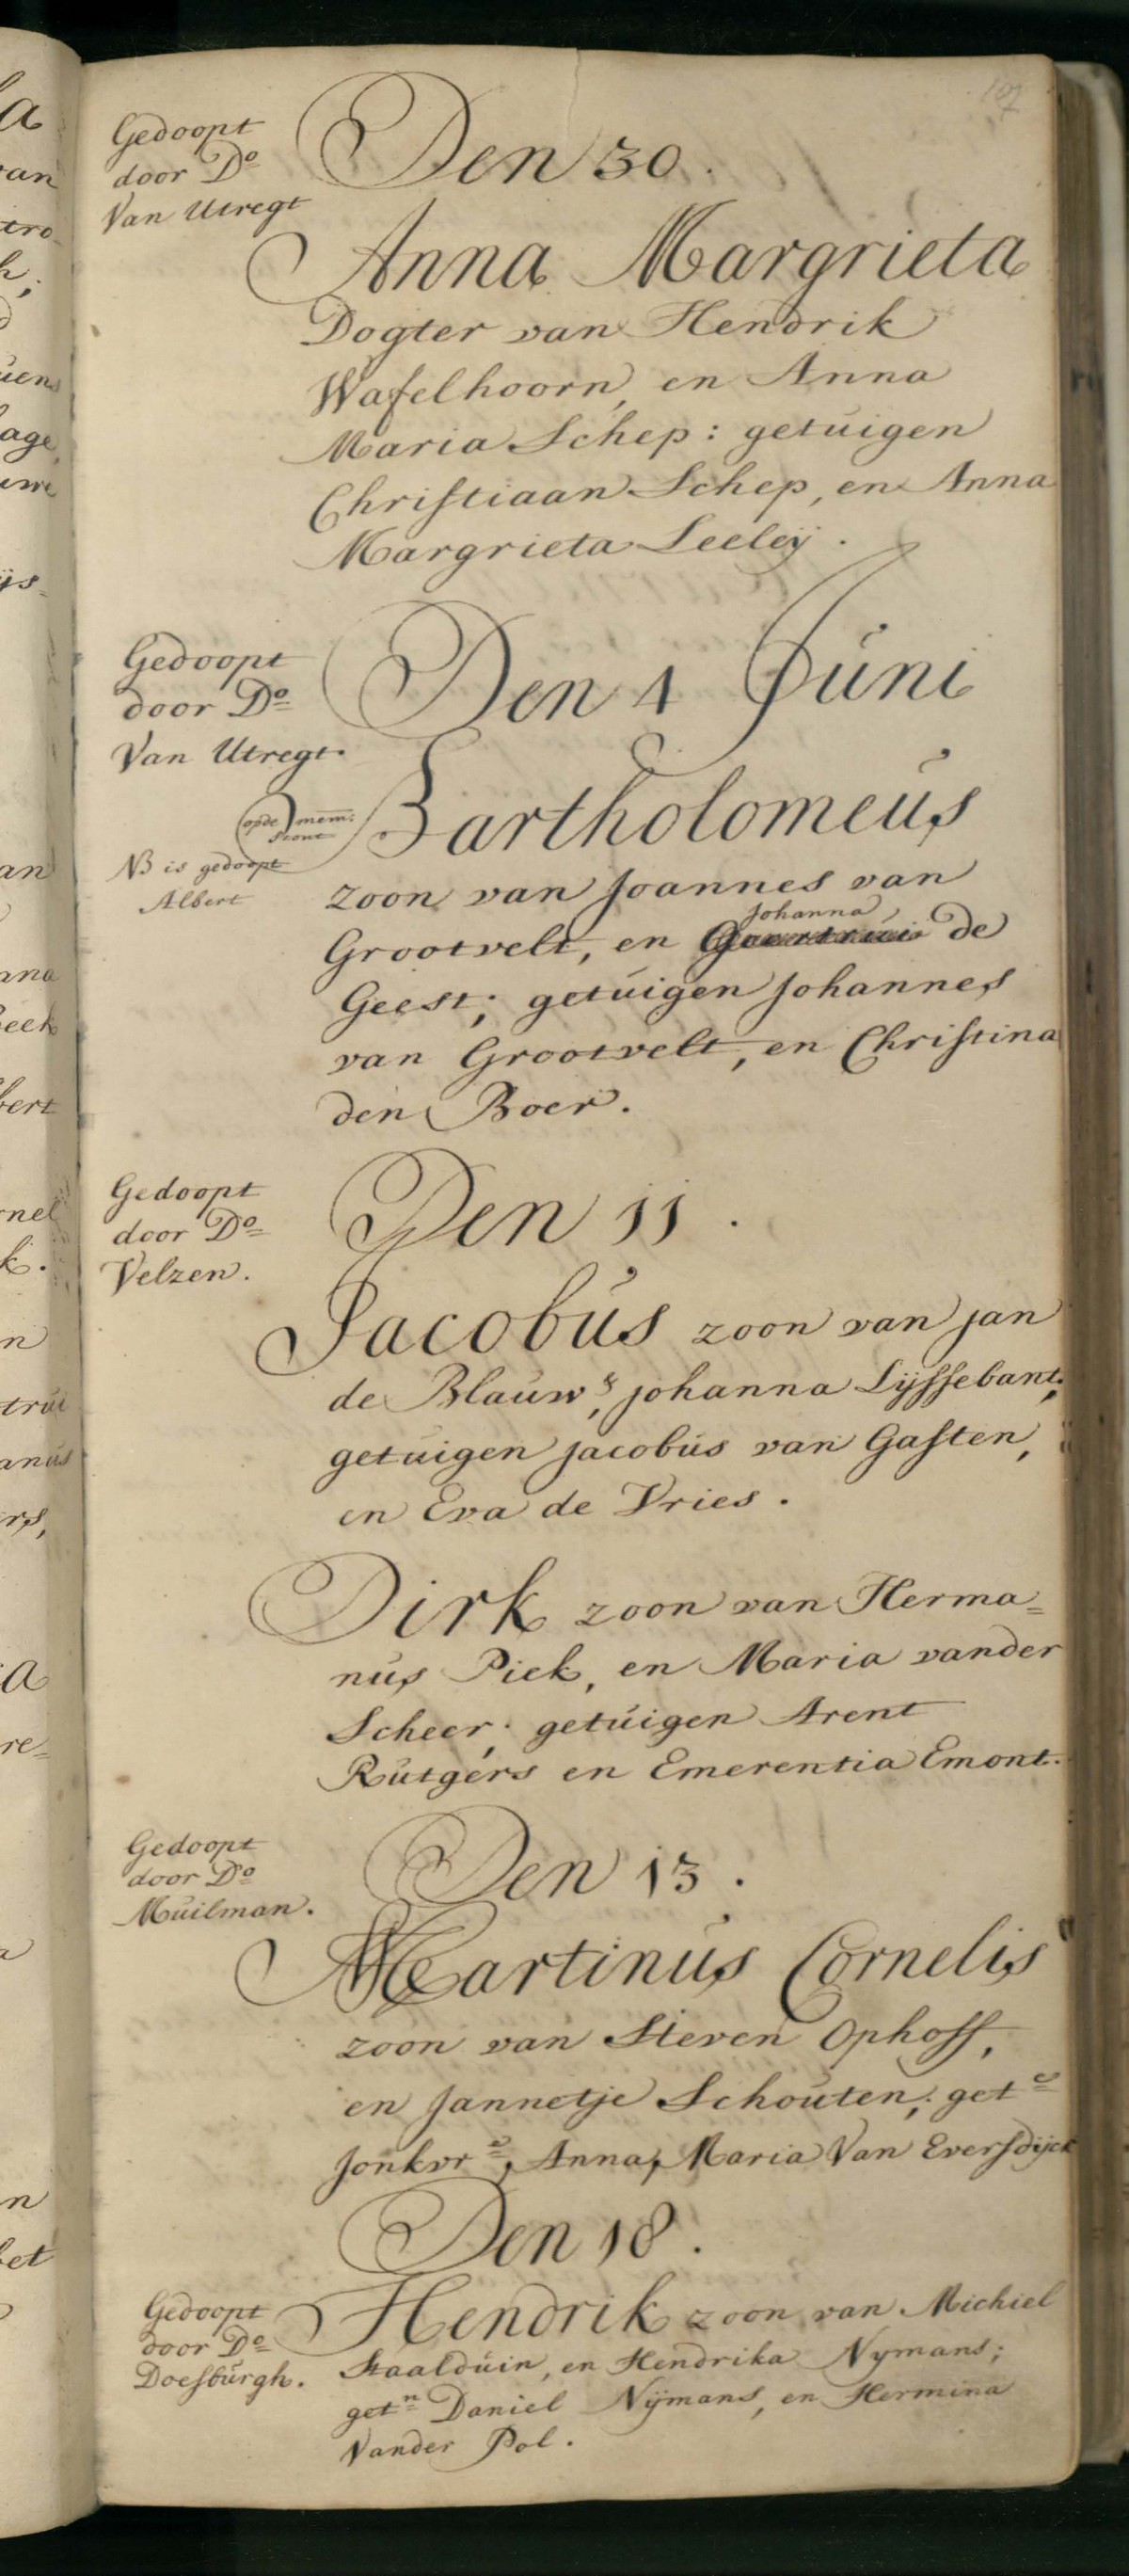 107
Gedoopt
door Do
Van Utregt
Den 30.
Anna Margrieta
Dogter van Hendrik
Wafelhoorn, en Anna
Maria Schep: getuigen
Christiaan Schep, en Anna
Margrieta Leeleÿ.
Gedoopt
door Do
Van Utregt.
Den 4 Juni
Bartholomeus
opde mem:
stont
NB is gedoopt
Albert
zoon van Joannes van
Johanna
Grootvelt, en Geertruis de
Geest; getuigen Johannes
van Grootvelt, en Christina
den Boer.
Gedoopt
door Do
Velzen.
Den 11.
Jacobus zoon van jan
de Blauw &, johanna Lijssebant;
getuigen jacobus van Gasten,
en Eva de Vries.
Dirk zoon van Herma=
nus Piek, en Maria vander
Scheer; getuigen Arent
Rutgers en Emerentia Emont.
Gedoopt
door Do
Muilman.
Den 13.
Martinus Cornelis
zoon van Steven Ophoff,
en Jannetje Schouten; get e
Jonkvr e, Anna, Maria Van Eversdijck
Den 18.
Gedoopt
door Do
Doesburgh.
Hendrik zoon van Michiel
Staalduin, en Hendrika Nymans;
get n Daniel Nijmans, en Hermina
Vander Pol.